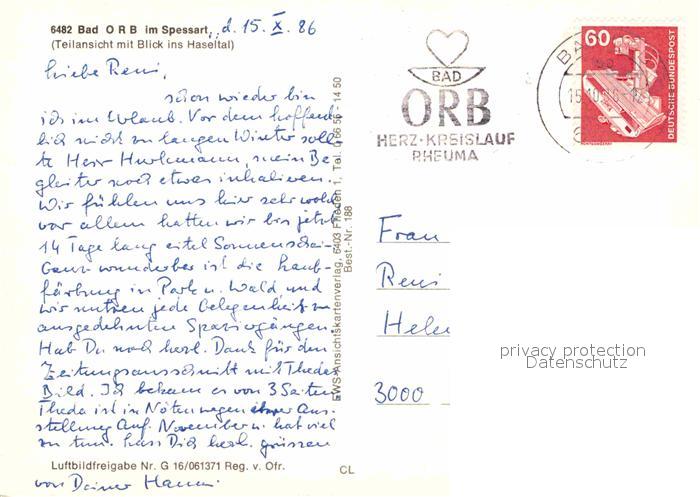 6482 Bad O R B im Spessart, d. 15. X. 86
(Teilansicht mit Blick ins Haseltal)
Liebe Reni,
schon wieder bin
ich im Urlaub. Vor dem hoffent-
lich nicht zu langen Winter soll-
te Herr Hurlemann, mein Be-
gleiter noch etwas inhalieren.
Wir fühlen uns hier sehr wohl
vor allem hatten wir bis jetzt
14 Tage lang eitel Sonnenschein
Ganz wunderbar ist die Laub-
färbung in Park u. Wald und
wir nutzen jede Gelegenheit zu
ausgedehnten Spaziergängen.
Hab Du noch herzl. Dank für den
Zeitungsausschnitt mit Thedas
Bild. Ich bekam es von 3 Seiten
Theda ist in Nöten wegen einer Aus-
stellung Anf. November u. hat viel
zu tun. Lass Dich herzl. grüssen
von Deiner Hanni
Luftbildfreigabe Nr. G 16/061371 Reg. v. Ofr.
CL
EWS-Ansichtskartenverlag, 6403 Flieden 1, Tel. 0 66 55 - 14 50
Best.-Nr. 188
BAD
ORB
HERZ·KREISLAUF
RHEUMA
60
DEUTSCHE BUNDESPOST
Frau
Reni
3000
privacy protection
Datenschutz